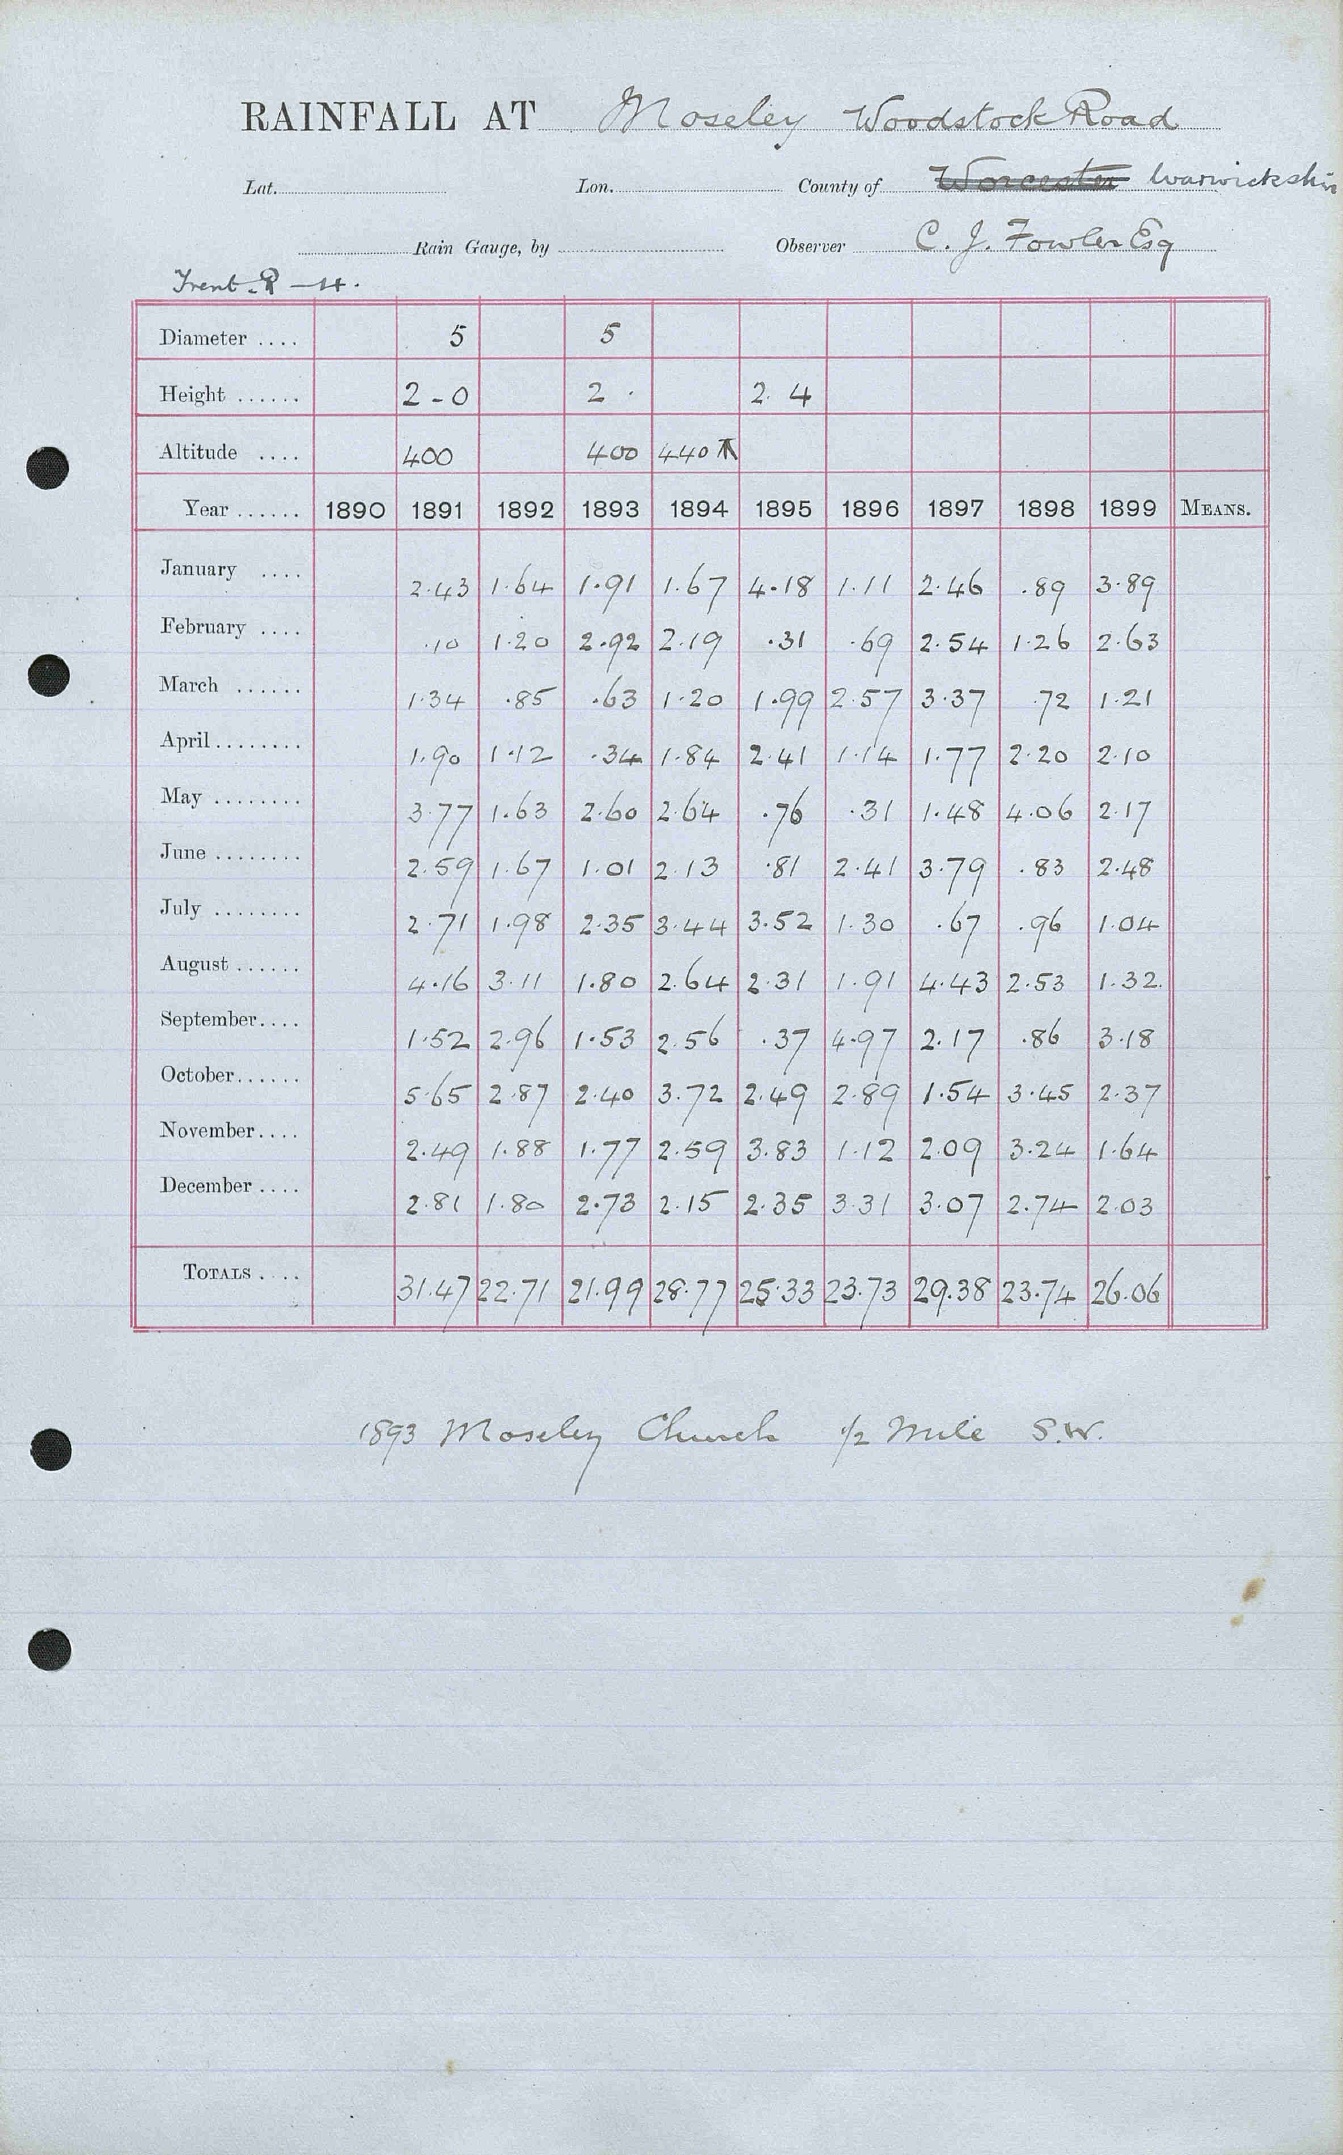 RAINFALL AT Moseley Woodstock Road
Lat. Lon. County of Worcester Warwickshire
Rain Gauge, by Observer C. J. Fowler Esq
Trent. R — 4.
Diameter .... 5 5
Height ...... 2-0 2. 2. 4
Altitude .... 400 400 440
Year ...... 1890 1891 1892 1893 1894 1895 1896 1897 1898 1899 MEANS.
January .... 2.43 1.64 1.91 1.67 4.18 1.11 2.46 .89 3.89
February .... .10 1.20 2.92 2.19 .31 .69 2.54 1.26 2.63
March ...... 1.34 .85 .63 1.20 1.99 2.57 3.37 .72 1.21
April ........ 1.90 1.12 .34 1.84 2.41 1.14 1.77 2.20 2.10
May ........ 3.77 1.63 2.60 2.64 .76 .31 1.48 4.06 2.17
June ........ 2.59 1.67 1.01 2.13 .81 2.41 3.79 .83 2.48
July ........ 2.71 1.98 2.35 3.44 3.52 1.30 .67 .96 1.04
August ...... 4.16 3.11 1.80 2.64 2.31 1.91 4.43 2.53 1.32.
September .... 1.52 2.96 1.53 2.56 .37 4.97 2.17 .86 3.18
October ...... 5.65 2.87 2.40 3.72 2.49 2.89 1.54 3.45 2.37
November .... 2.49 1.88 1.77 2.59 3.83 1.12 2.09 3.24 1.64
December .... 2.81 1.80 2.73 2.15 2.35 3.31 3.07 2.74 2.03
TOTALS .... 31.47 22.71 21.99 28.77 25.33 23.73 29.38 23.74 26.06
1893 Moseley Church 1/2 Mile S.W.